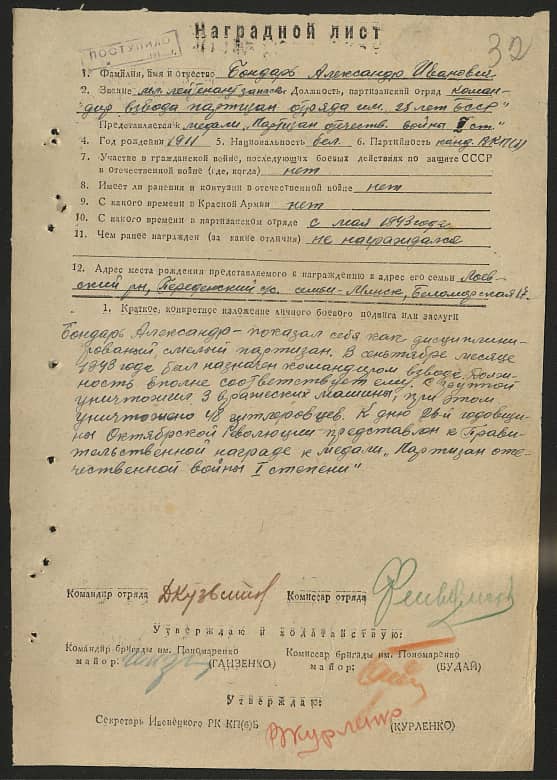 Наградной лист
ПОСТУПИЛО
32
1. Фамилия, имя и отчество Бондарь Александр Иванович
2. Звание мл. лейтенант запаса. Должность, партизанский отряд Коман-
дир взвода партизан отряда им. 25 лет БССР"
Представляется к медали „Партизан отечеств. войны I ст."
4. Год рождения 1911 5. Национальность бел. 6. Партийность канд. ВКП(б)
7. Участие в гражданской войне, последующих боевых действиях по защите СССР
в отечественной войне (где, когда) нет
8. Имеет ли ранения и контузии в отечественной войне нет
9. С какого времени в Красной Армии нет
10. С какого времени в партизанском отряде с мая 1943 года
11. Чем ранее награжден (за какие отличия) не награждался
12. Адрес места рождения представляемого к награждению и адрес его семьи Лоев-
ский р-н, семьи-Минск, Беломорская 17.
1. Краткое, конкретное изложение личного боевого подвига или заслуги
Бондарь Александр - показал себя как дисциплини-
рованый, смелый партизан. В сентябре месяце
1943 года был назначен командиром взвода. Долж-
ность вполне соответствует ему. С группой
уничтожил 3 вражеских машины, при этом
уничтожено 48 гитлеровцев. К дню 26-й годовщи-
ны Октябрской Революции представлен к Прави-
тельственной награде к медали „Партизан оте-
чественной войны I степени"
Командир отряда ДКузьмин Комиссар отряда
Утверждаю и ходатайствую:
Командир бригады им. Пономаренко Комиссар бригады им. Пономаренко
майор: (ГАЦЗЕНКО) майор: (БУДАЙ)
Утверждаю:
Секретарь Ивенецкого РК КП(б)Б Журленко (КУРЛЕНКО)